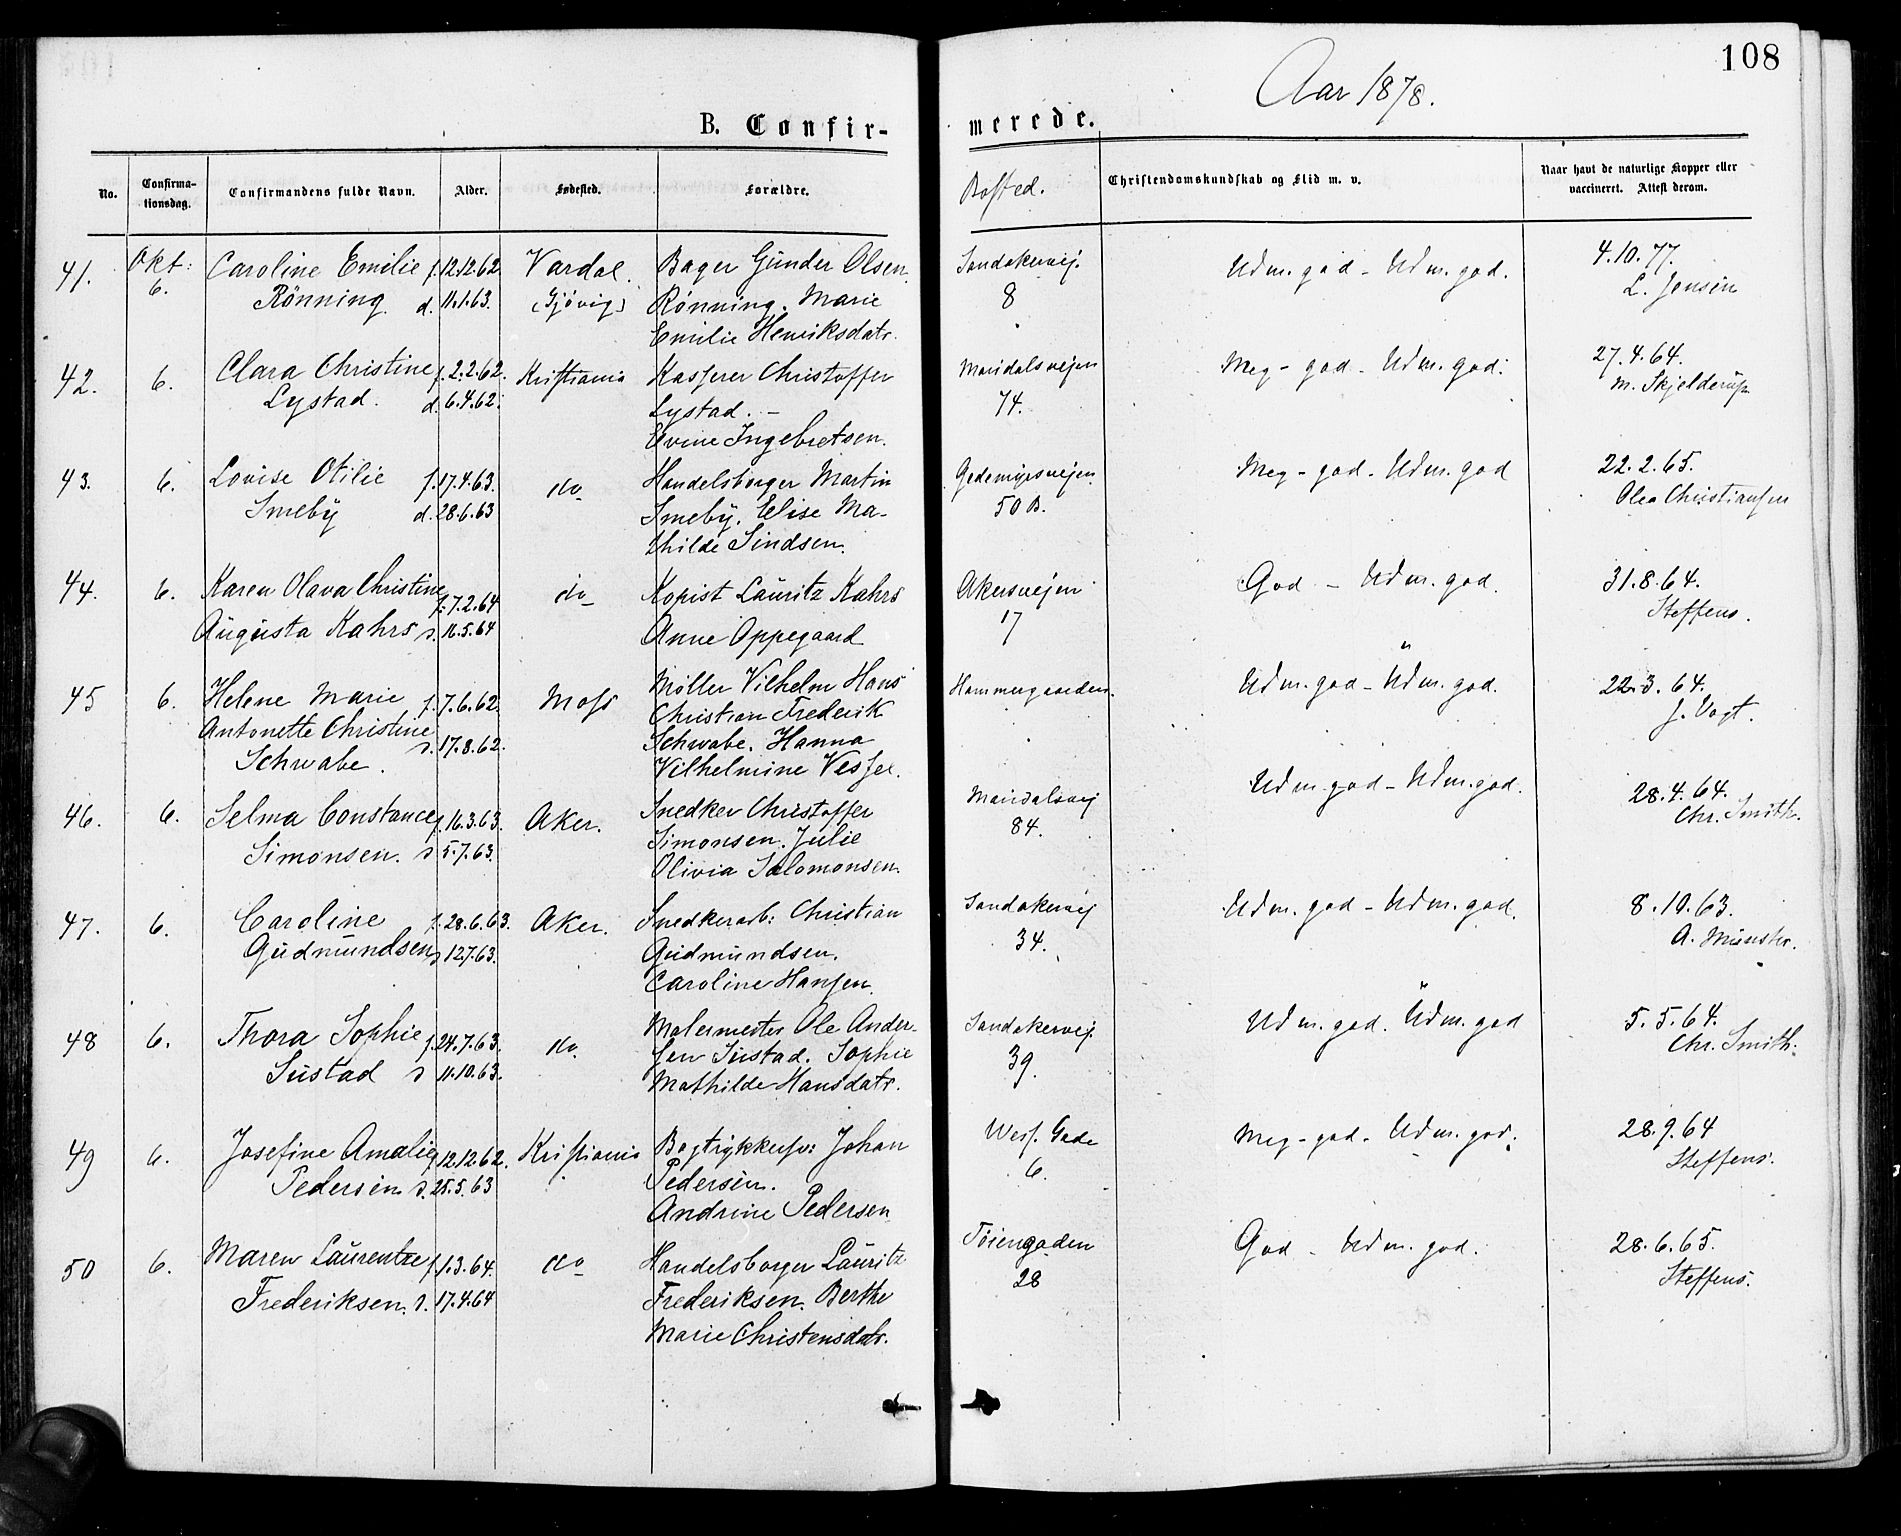 108
Aar 1878.
B. Confir-
merede.
No.
Confirma-
tionsdag.
Confirmandens fulde Navn.
Alder.
Fødested.
Forældre.
Bosted.
Christendomskundskab og Flid m. v.
Naar havt de naturlige Kopper eller
vaccineret. Attest derom.
41. Okt: Caroline Emilie f. 12.12.62 Vardal. Bager Gunder Olsen Sandakervej. Udm. god - Udm. god. 4.10.77.
6. Rönning. d. 11.1.63. (Gjövig) Rönning. Marie 8 L. Jensen
Emilie Henriksdatr.
42. 6. Clara Christine f. 2.2.62. Kristiania Kasserer Christoffer Maridalsvejen Meg - god - Udm. god. 27.4.64.
Lystad. d. 6.4.62. Lystad. - 74. M. Skjelderup
Evine Ingebretsen.
43. 6. Lovise Otilie f. 17.4.63. do Handelsborger Martin Gedemyrsvejen Meg - god - Udm. god 22.2.65.
Smeby d. 28.6.63 Smeby. Elise Ma- 50 B. Olea Christiansen
thilde Sindsen.
44. 6. Karen Olava Christine f. 7.2.64 do Kopist Lauritz Kahrs Akersvejen God - Udm. god. 31.8.64.
Augusta Kahrs d. 16.5.64 Anne Oppegaard 17 Steffens.
45 6. Helene Marie f. 7.6.62. Moss Möller Vilhelm Hans Hammergaarden. Udm. god - Udm. god. 22.3.64.
Antonette Christine d. 17.8.62. Christian Frederik J. Vogt.
Schwabe. Schwabe. Hanna
Vilhelmine Vessel.
46. 6. Selma Constance f. 16.3.63. Aker. Snedker Christoffer Maridalsvej Udm. god - Udm. god. 28.4.64.
Simonsen. d 5.7.63. Simonsen. Julie 84. Chr. Smith.
Olivia Salomonsen.
47. 6. Caroline f. 28.6.63. Aker. Snedkerarb: Christian Sandakervej Udm. god - Udm. god. 8.10.63.
Gudmundsen d 12.7.63. Gudmundsen. 34. A. Münster.
Caroline Hansen.
48 6. Thora Sophie f. 24.7.63. do. Malermester Ole Ander- Sandakervej. Udm. god. Udm. god 5.5.64.
Sustad d 11.10.63. sen Sustad. Sophie 39. Chr. Smith.
Mathilde Hansdatr.
49 6. Josefine Amalie f. 12.12.62. Kristiania Bogtrykkersv: Johan Wess. Gade Meg - god - Udm. god. 28.9.64
Pedersen d. 25.5.63 Pedersen. 6. Steffens.
Andrine Pedersen
50 6. Maren Laurentze f. 1.3.64. do Handelsborger Lauritz Töiengaden God - Udm. god. 28.6.65.
Frederiksen. d. 17.4.64 Frederiksen. Berthe 28 Steffens.
Marie Christensdatr.